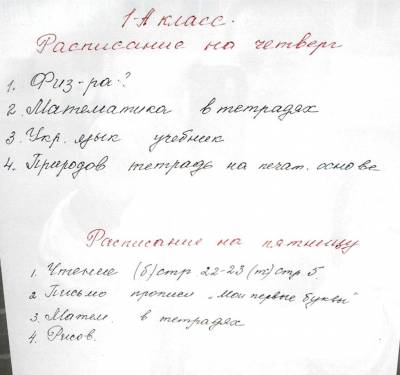 1-А класс.
Расписание на четверг
1. Физ-ра?
2. Математика в тетрадях
3. Укр. язык учебник
4. Природов тетрадь на печат. основе
Расписание на пятницу
1. Чтение (б) стр 22-23 (т) стр 5
2 Письмо прописи „Мои первые буквы"
3. Матем. в тетрадях
4. Рисов.